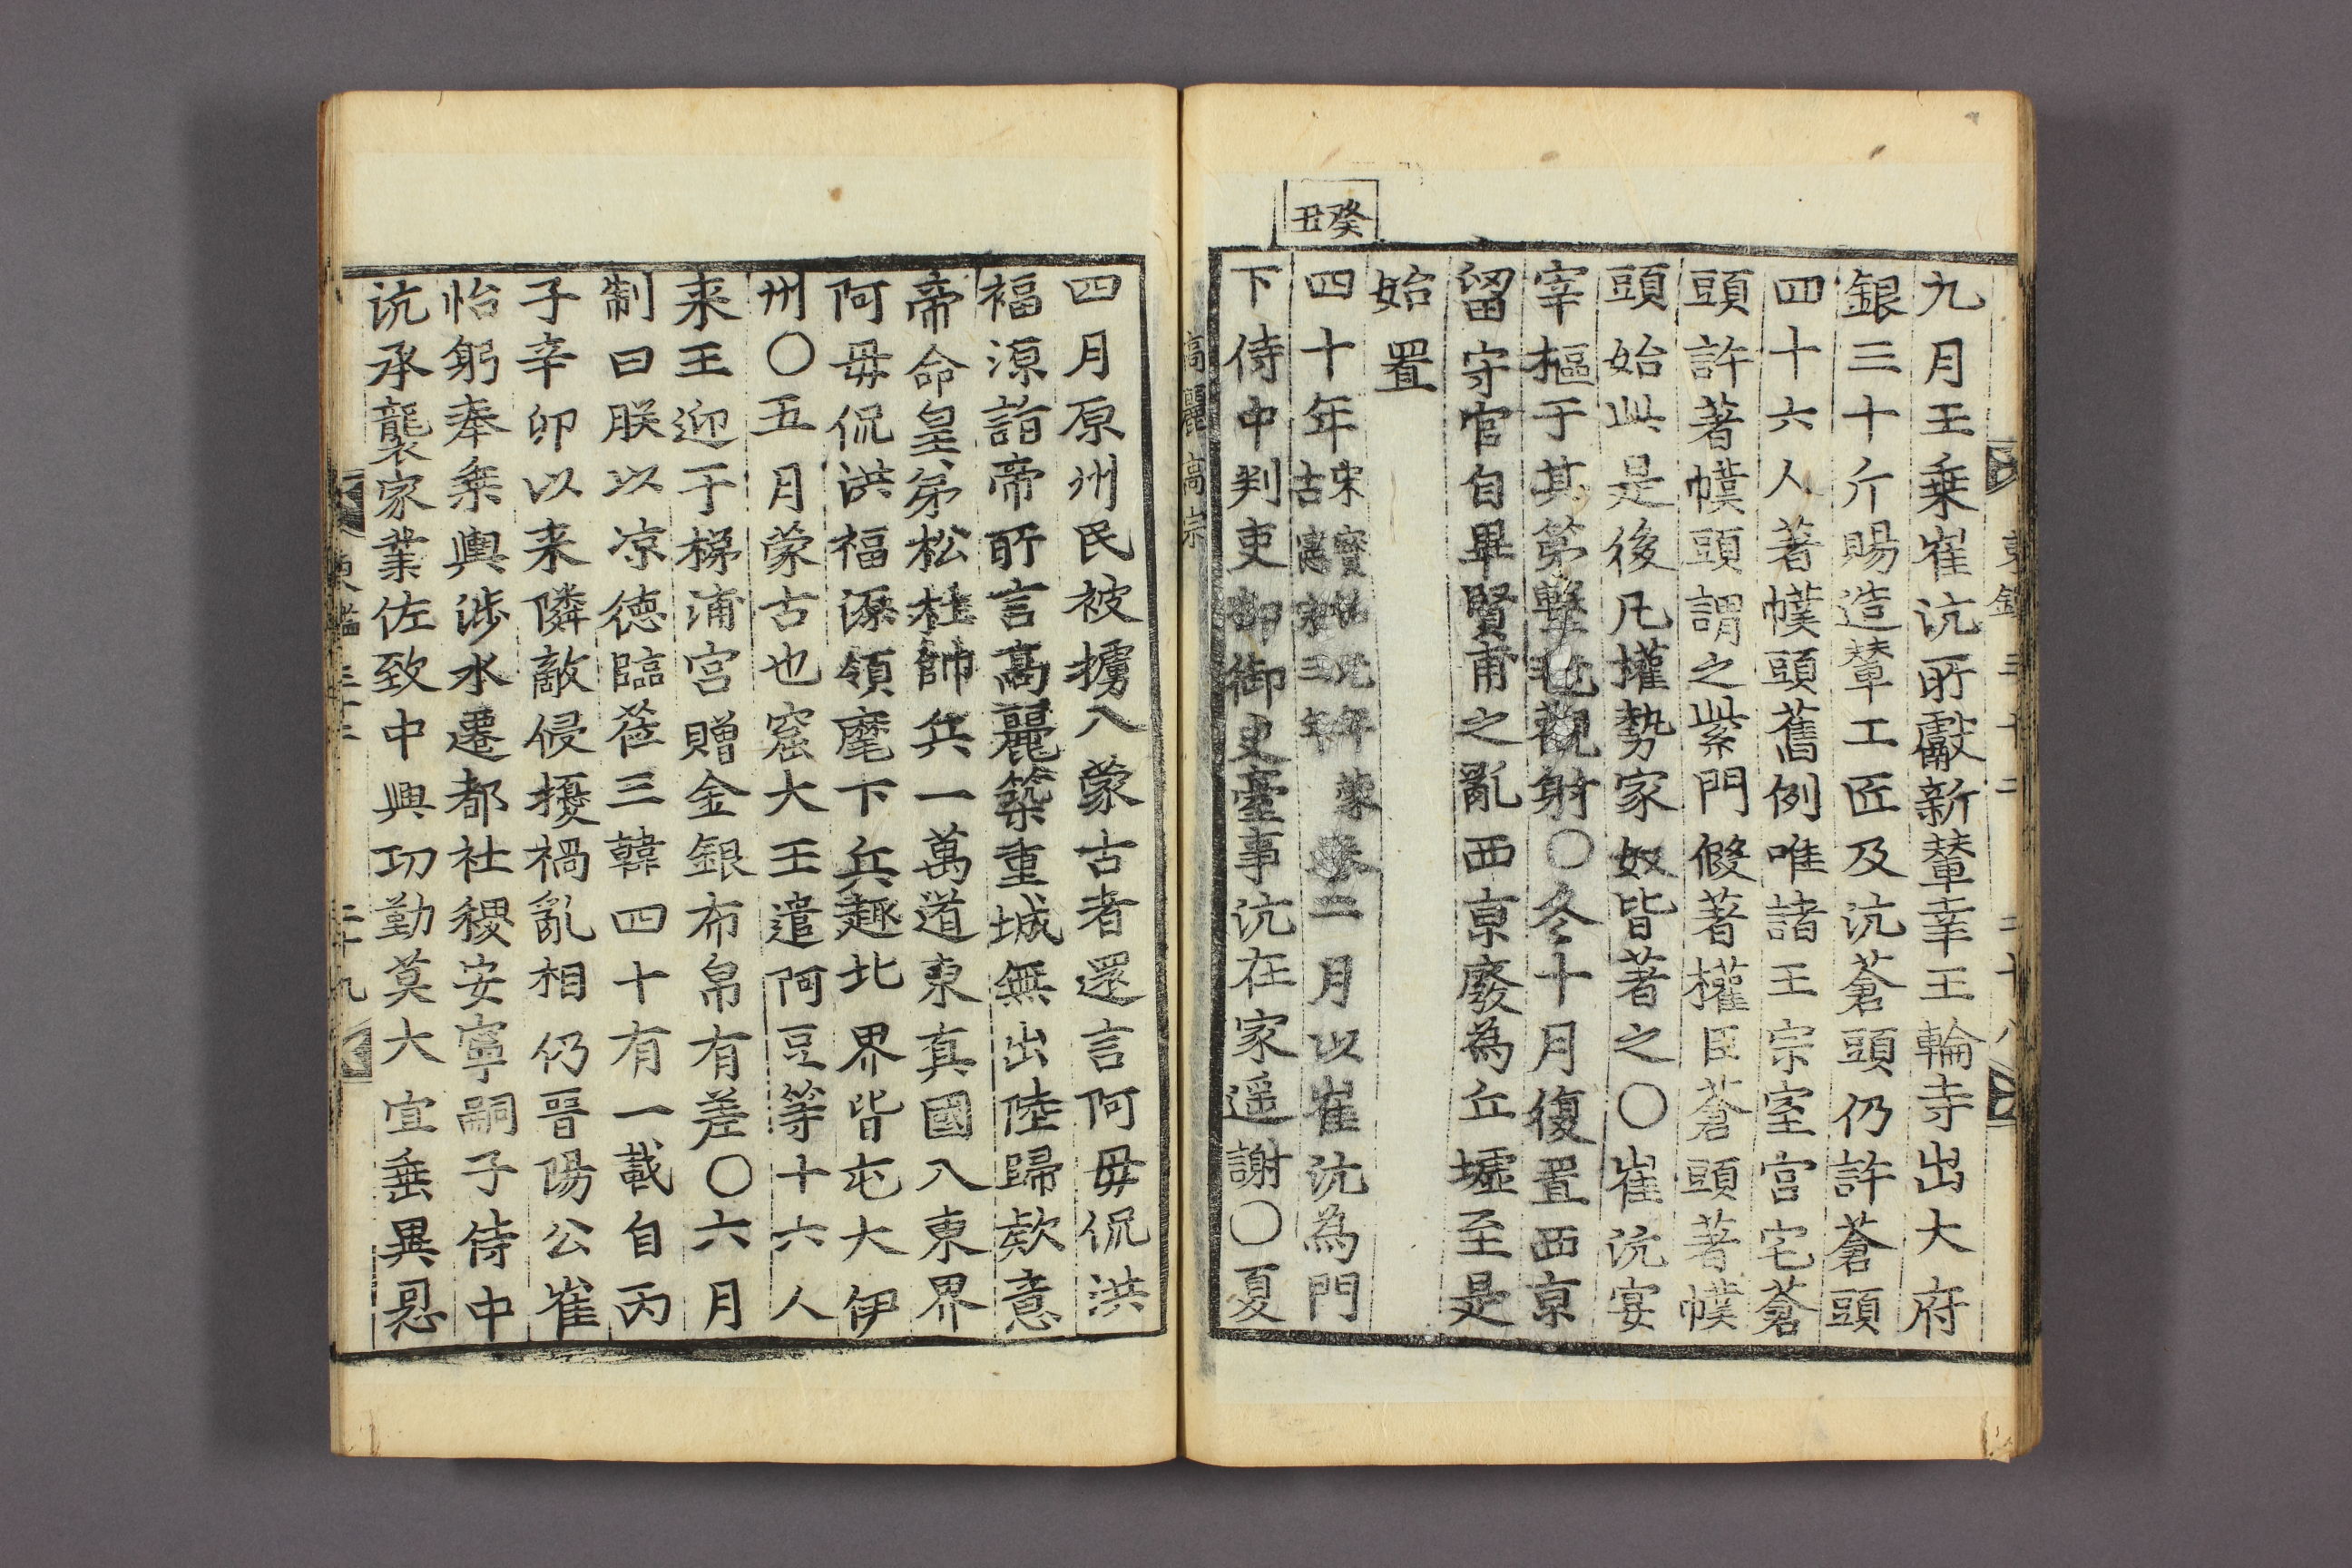 東鑑三十二 二十八
九月王乗崔沆所獻新輦幸王輪寺出大府
銀三十斤賜造輦工匠及沆蒼頭仍許蒼頭
四十六人著幞頭舊例唯諸王宗室宫宅蒼
頭許著幞頭謂之紫門假著權臣蒼頭著幞
頭始此是後凡權勢家奴皆著之〇崔沆宴
宰樞于其第擊毬觀射〇冬十月復置西京
留守官自畢賢甫之亂西京廢為丘墟至是
始置
癸丑
四十年宋寳祐元年蒙古憲宗三年春二月以崔沆為門
下侍中判吏部御史臺事沆在家遥謝〇夏
高麗 高宗
四月原州民被擄入蒙古者還言阿毋侃洪
福源詣帝所言高麗築重城無出陸歸欵意
帝命皇弟松柱帥兵一萬道東真國入東界
阿毋侃洪福源領麾下兵趣北界皆屯大伊
州〇五月蒙古也窟大王遣阿豆等十六人
来王迎于梯浦宫贈金銀布帛有差〇六月
制曰朕以凉德臨莅三韓四十有一載自丙
子辛卯以来隣敵侵擾禍亂相仍晋陽公崔
怡躬奉乗輿涉水遷都社稷安寧嗣子侍中
沆承襲家業佐致中興功勤莫大宜垂異恩
東鑑三十二 二十九